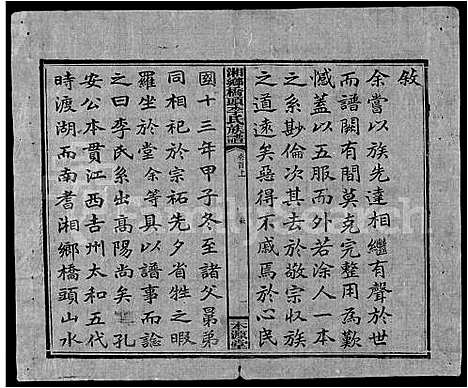 敘
余嘗以族先達相繼有聲於世
而譜闕有間莫克完整用為歎
憾蓋以五服而外若涂人一本
之系尠倫次其去於敬宗收族
之道遠矣惡得不戚焉於心民
湘鄉橋頭李氏族譜
卷首上
敘
本源堂
國十三年甲子冬至諸父昴弟
同相祀於宗祏先夕省牲之暇
羅坐於堂余等具以譜事而諗
之曰李氏系出高陽尚矣 孔
安公本貫江西吉州太和五代
時渡湖而南耆湘鄉橋頭山水